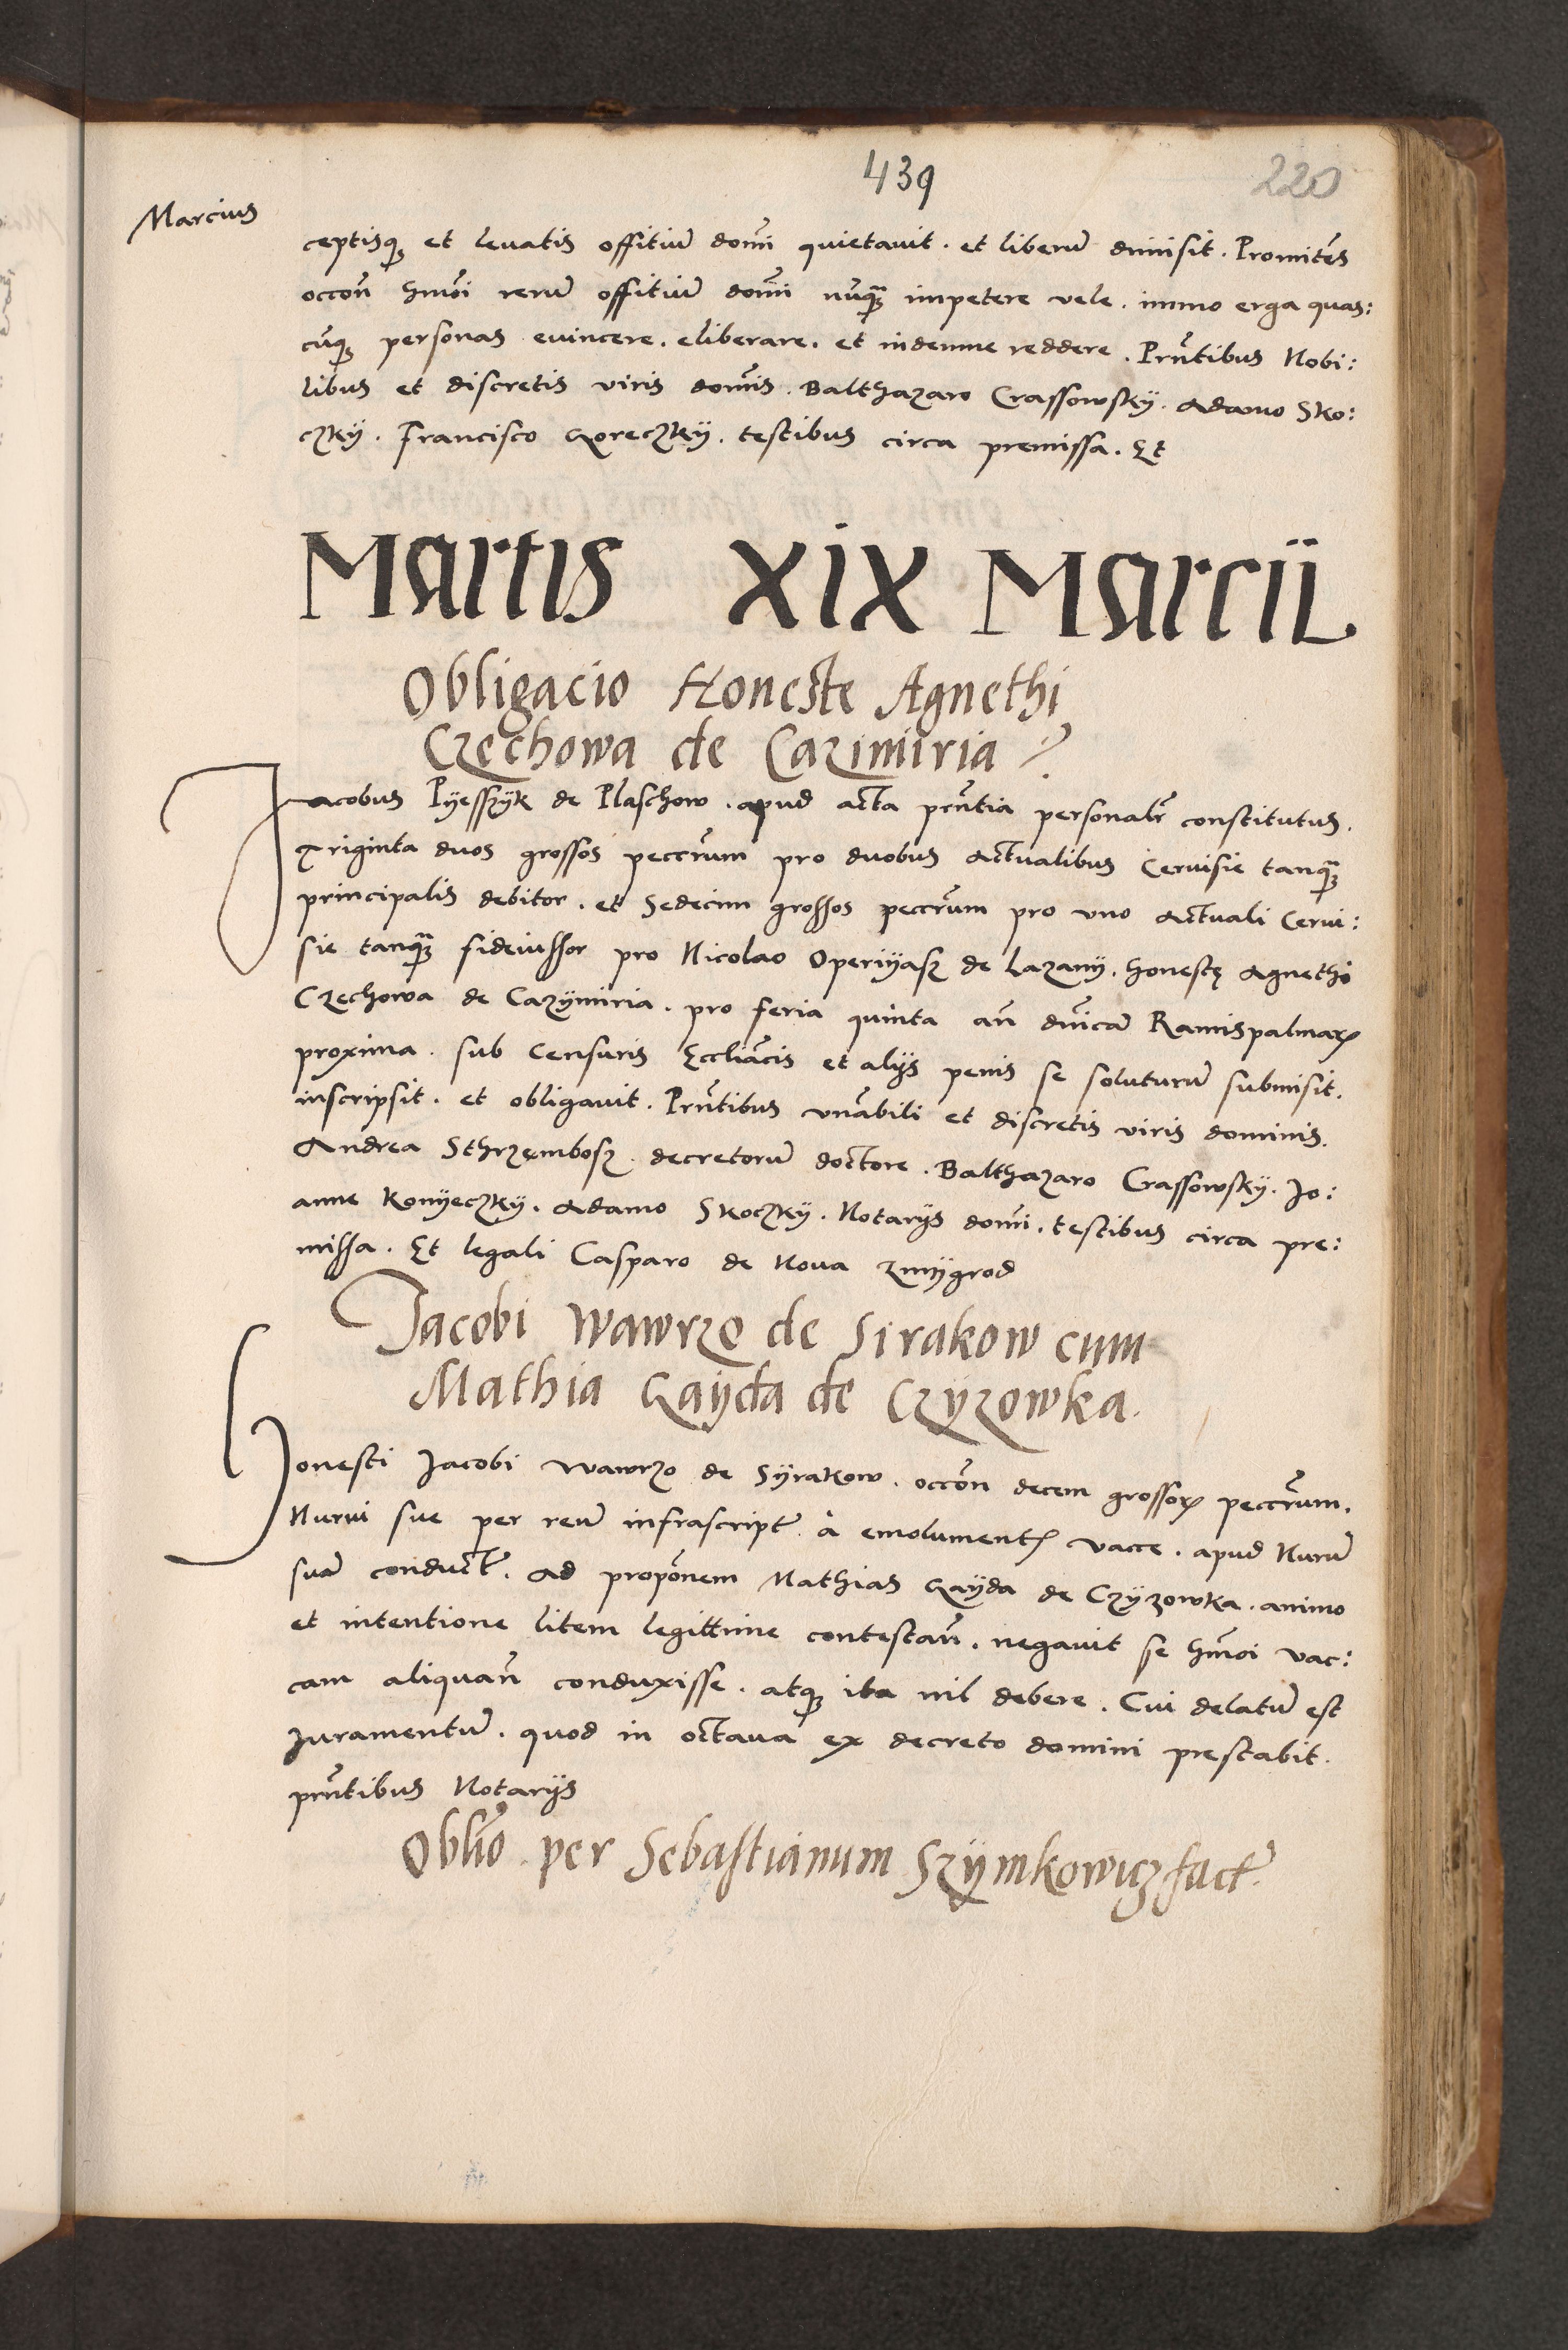 439
220
Marcius
ceptisq et levatis offitiū domī quietavit . et liberū dimisit . Promitēs
occon̄ hmōi rerū offitiū domī nūq̄ impetere vele . immo erga quas:
cūq personas evincere . eliberare . et indemne reddere . Prn̄tibus Nobi:
libus et discretis viris domīs . Balthazaro Crassowskÿ . Adamo Sko:
czkÿ . Francisco Goreczkÿ . testibus circa premissa . Et
Martis XIX Marcii.
Obligacio Honeste Agnethi
Czechowa de Cazimiria
Jacobus Pÿesszÿk de Plaschow . apud acta prn̄tia personalr̄ constitutus .
Triginta duos grossos peccr̄um pro duobus Actualibus Cervisie tanq̄
principalis debitor . et Sedecim grossos peccr̄um pro uno Actuali Cervi:
sie tanq̄ fideiussor pro Nicolao Operÿasz de Lazany . honestę Agnethi
Czechowa de Cazÿmiria . pro feria quinta an̄ dn̄icā Ramispalmarꝝ
proxima . sub Censuris Eccliācis et alÿs penis se soluturū submisit .
inscripsit . et obligavit . Prn̄tibus vnābili et discretis viris dominis .
Andrea Sthrzęmbosz . decretorū doctore . Balthazaro Crassowskÿ . Jo:
anne Konÿeczkÿ . Adamo Skoczkÿ . Notarÿs domī . testibus circa pre:
missa . Et legali Casparo de Nova Zmÿgrod
Jacobi Wawrzo de Sirakow cum
Mathia Gaÿda de Czÿzowka.
Honesti Jacobi Wawrzo de Sÿrakow . occōn decem grossorꝝ peccr̄um .
Nurui sue per reū infrascript̄ . à emolument̄ vacce . apud Nurū
suā conduct̄ . Ad propōnem Mathias Gaÿda de Czÿzowka . animo
et intentione litem legittime contestan̄ . negavit se hmōi vac:
cam aliquan̄ conduxisse . atq ita nil debere . Cui delatū est
Juramentū . quod in octava ex decreto domini prestabit .
prn̄tibus Notarÿs
Oblio̅ . per Sebastianum Szÿmkowicz fact̄ .